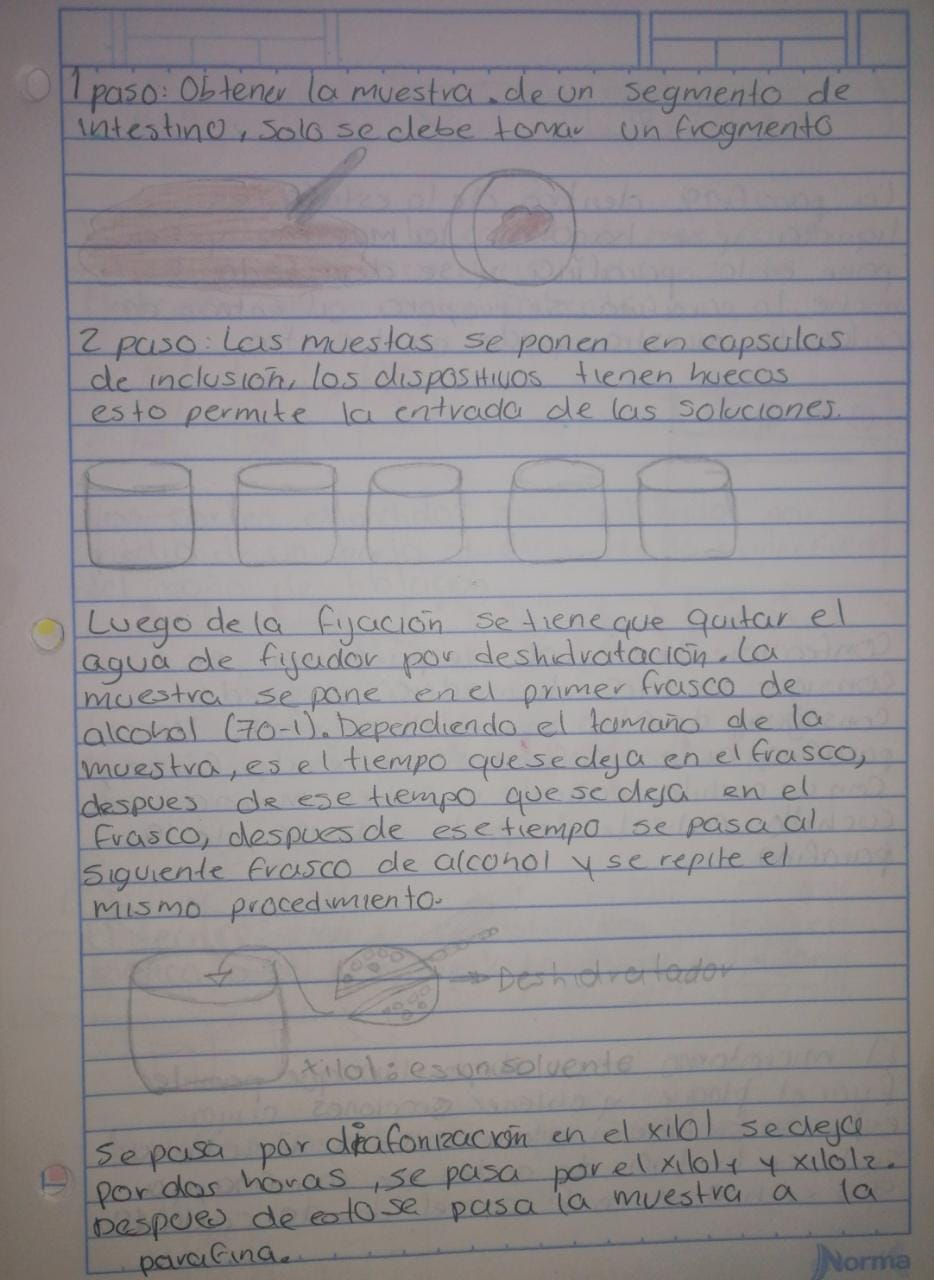 1 paso: Obtener la muestra. de un segmento de
intestino, solo se debe tomar un fragmento
2 paso: Las muestas se ponen en capsulas
de inclusión, los dispositivos tienen huecos
esto permite la entrada de las soluciones.
Luego de la fijación se tiene que quitar el
agua de fijador por deshidratación. La
muestra se pone en el primer frasco de
alcohol (70-1). Dependiendo el tamaño de la
muestra, es el tiempo que se deja en el frasco,
despues de ese tiempo que se deja en el
frasco, despues de ese tiempo se pasa al
siguiente frasco de alcohol y se repite el
mismo procedimiento.
→ Deshidratador
xilol: es un solvente
Se pasa por diafonización en el xilol se deja
por dos horas, se pasa por el xilol 1 y xilol 2.
Despues de esto se pasa la muestra a la
parafina.
Norma